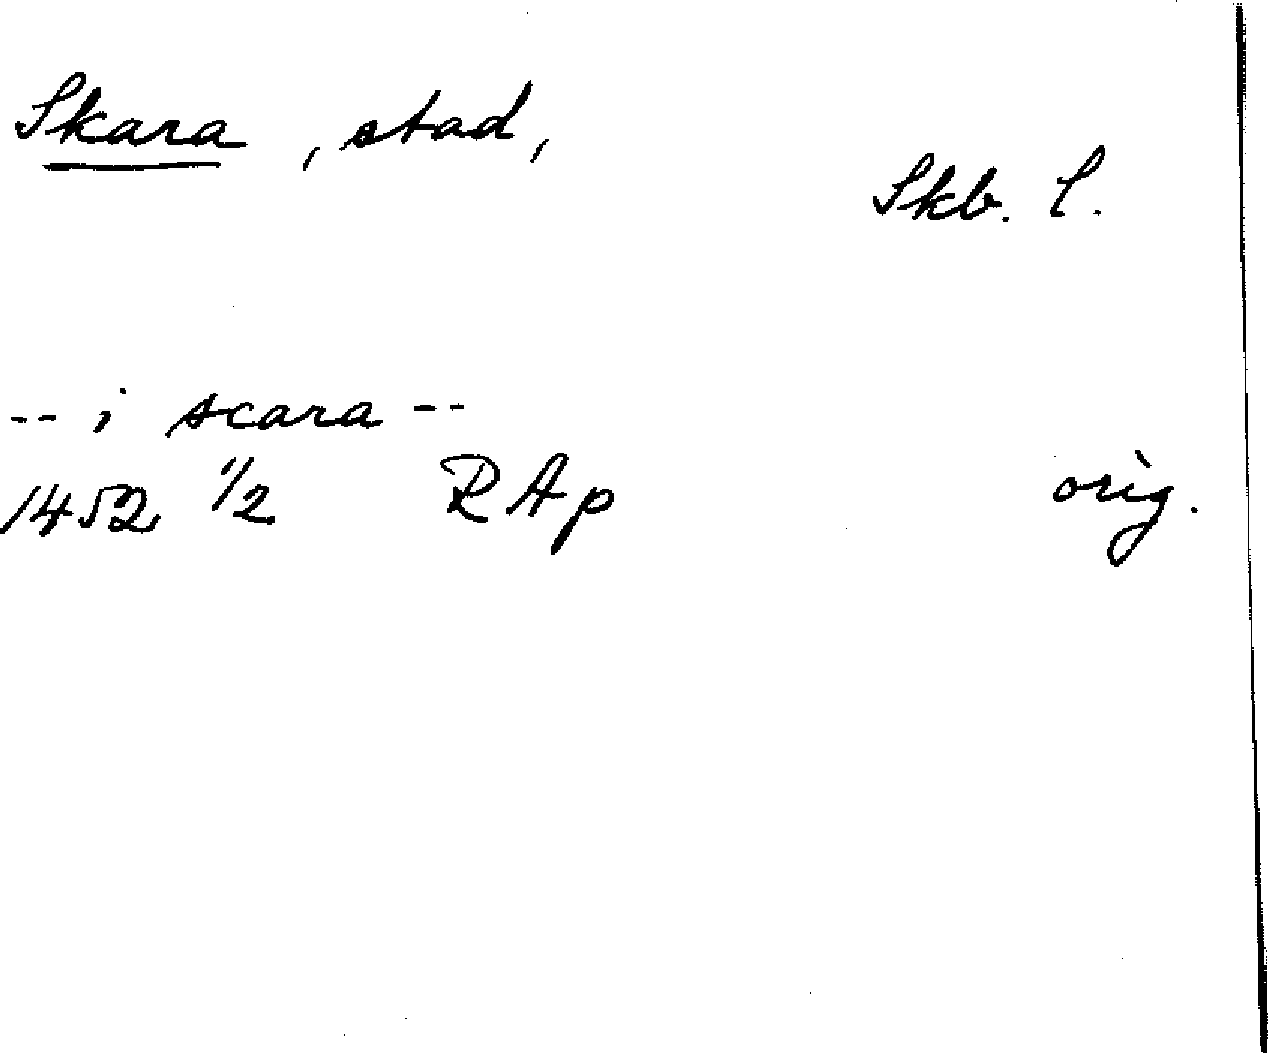 Skara, stad,
Skb. l.
-- i scara --
1452 1/2 RAp orig.